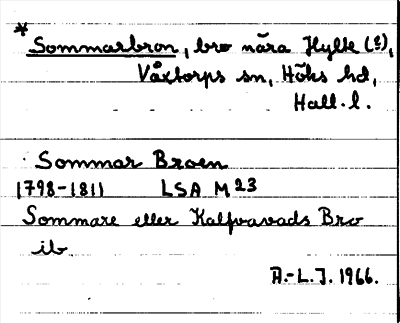 * Sommarbron, bro nära Hylte (?),
Våxtorps sn, Höks hd,
Hall. l.
Sommar Broen
1798-1811 LSA M23
Sommare eller Kalfvavads Bro
ib.
A.-L.J. 1966.